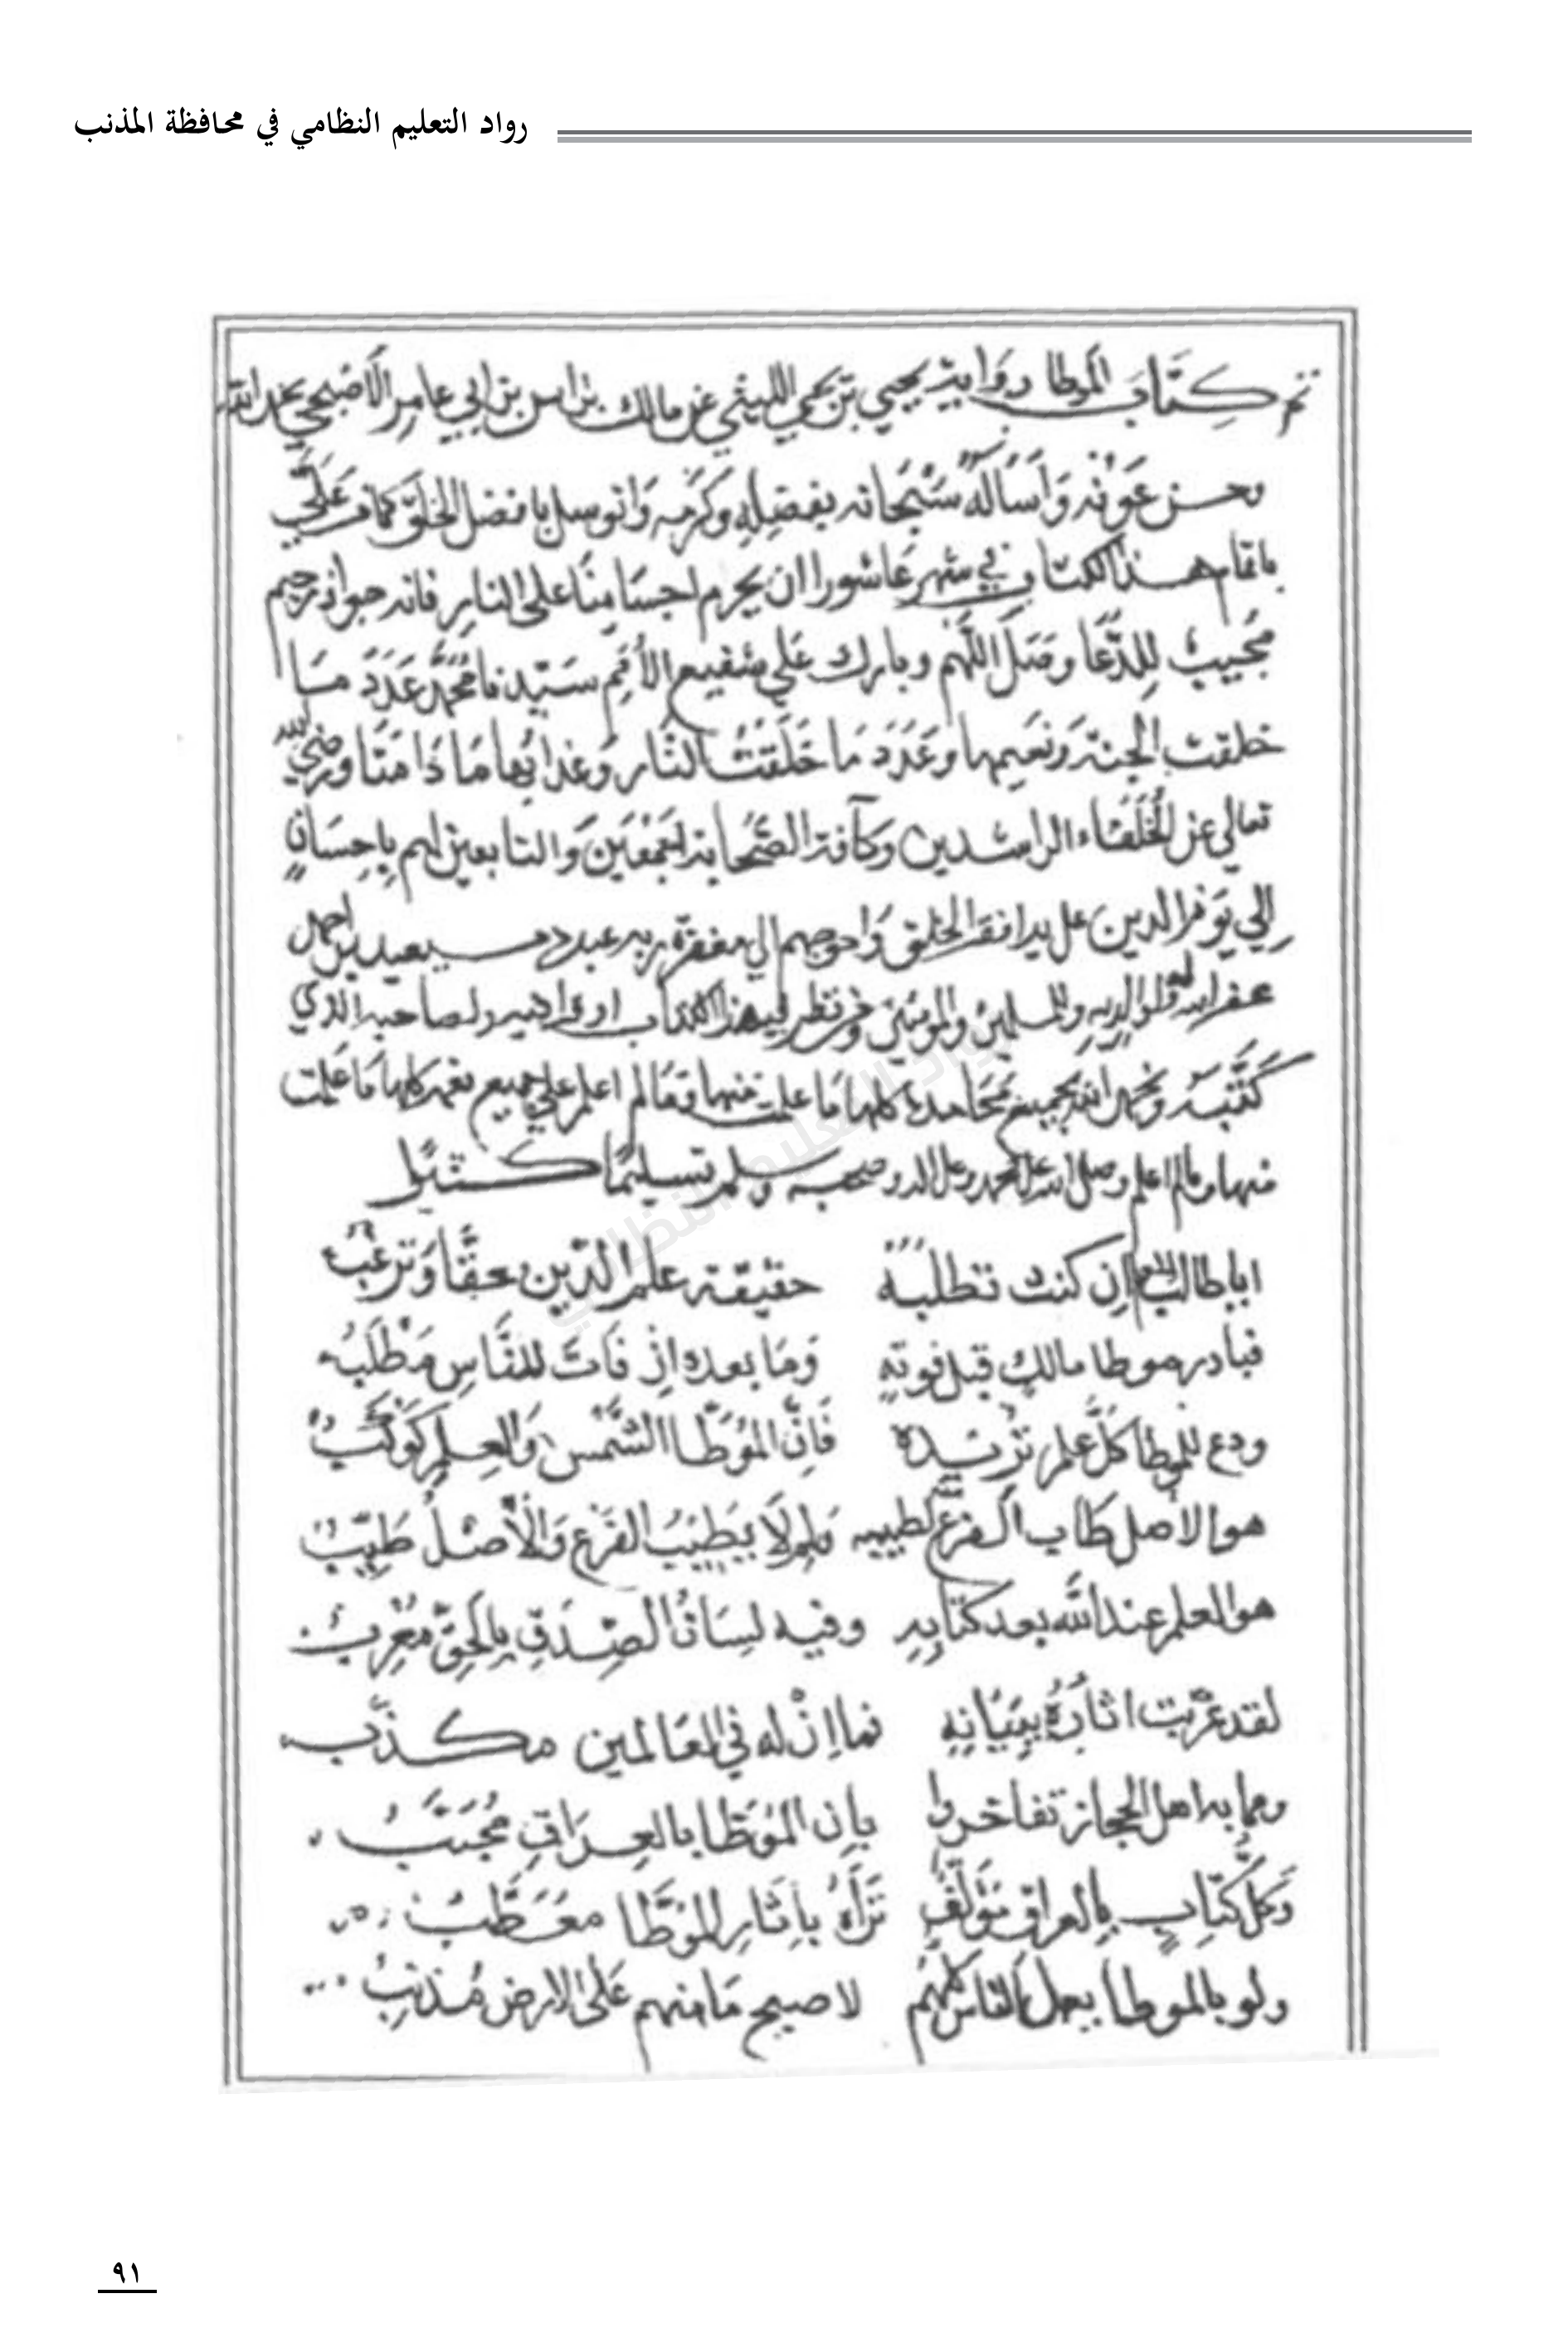 رواد التعليم النظامي في محافظة المذنب
تم كتاب الموطا رواية يحيي بن يحيي الليثي عن مالك بن انس بن ابي عامر الأصبحي بحمد الله
وحسن عونه وَأسَالُهُ سُبْحَانه بفضلِهِ وكَرَمِه وَاتوسل بافضل الخلق كمامَن عَلَيَّ
باتمام هذا الكتاب في شهر عَاشورا ان يحرم اجسَامنَا على النار فانه جواد رحيم
مُجيبٌ للِدُّعَا وصَلِّ اللَّهُم وبارك عَلي شفيع الأُمَمِ سَيّدِنا مُحَمَّدٍ عَدَدَ مَا
خلقت الجنة ونعيمها وعَدَدَ مَا خَلَقْتَ النَّار وَعذابُها مَا دَامَتَا ورضي الله
تعالي عن الخُلَفَاء الراشدين وكآفة الصَّحَابة اجمعَين وَالتابعين لهم بِاحِسَانٍ
إِلي يَومِ الدين عَلى يد افقر الخلق وَاحوجهم الي مغفرة ربه عبده سعيد بن احمد
غفر الله له ولوالديه وللمسلمين والمومنين ومن نظر فيهذا الكتاب اوقرا فيه ولصاحبه الذي
كَتَبَه وَنحمد الله بجميع مَحَامده كلها مَا علمت منها ومَالم اعلم علي جميع نعمه كلها مَا عَلمت
منها ومالم اعلم وصلى الله على محمد وعلى اله وصحبه وسلم تسليمًا كثيرا
ايا طالب العلم إن كنت تطلبه حقيقة علم الدِّين محقًا وَترغبُ
فبادر موطا مالكٍ قبل فوتهِ وَمَا بعده إذ فَاتَ للنَّاسِ مَطْلَبُ
ودع للموطا كلَّ علم تُريده فَإِنَّ المُوَطّا الشَّمْس وَالعِلمِ كَوْكَبُ
هوا لاصل طاب الفرع لطيبه وَلم لَا يَطِيبُ الفَرْع وَالْأَصْلُ طَيّبُ
هوالعلم عند الله بعد كتابِهِ وفيه لسَانُ الصِّدقِ بِالحَقِّ مُعْرِبُ
لقد عربت اثارُهُ ببَيَانِهِ فما اِنْ له في العَالمين مكذّب
ومما به اهل الحجاز تفاخروا بأن المُوَطّا بالعِرَاقِ مُحَبَّبُ
وكلُّ كتَابٍ بالعراق مؤَلّفٌ تَرَاهُ بآثَارِ الموَطّا معَصَّبُ
ولو بالموطا يعمل الناس كلهُم لاصبح مَامنهم عَلى الارض مُذنبُ
٩١